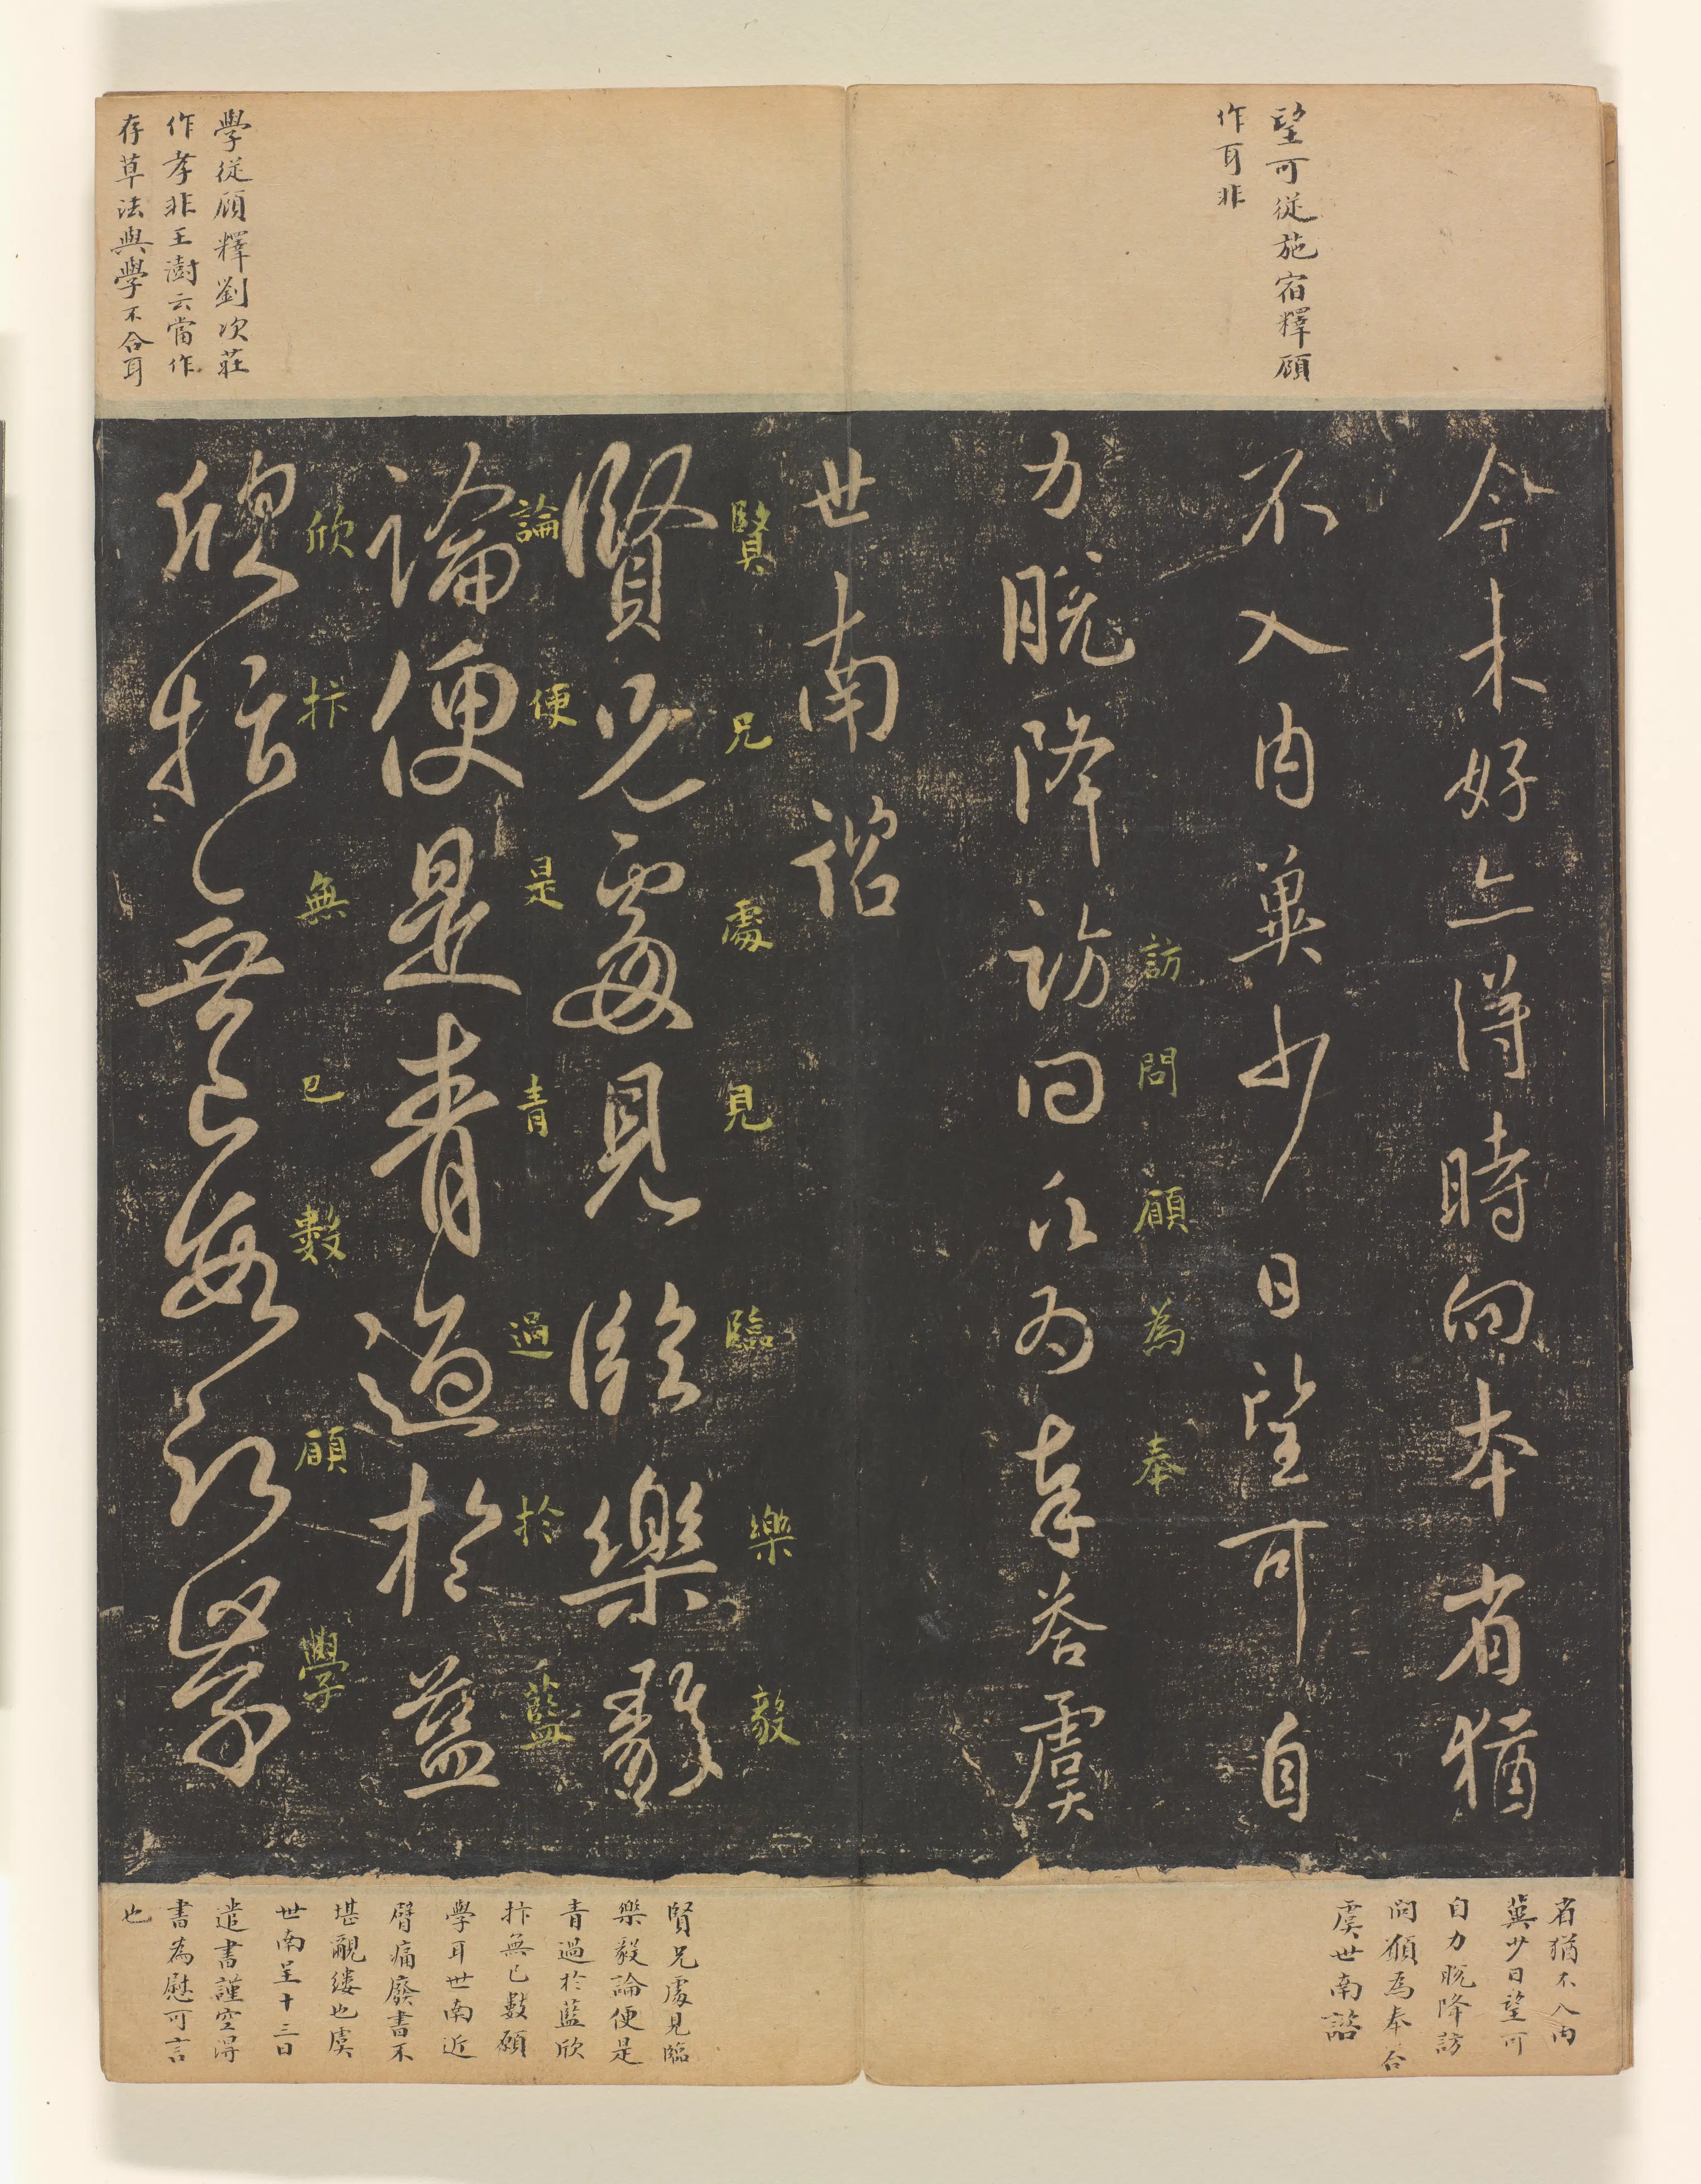 望可從施宿釋顧
作耳非
學從顧釋劉次莊
作孝非王澍云當作
存草法與學不合耳
今未好亦得時向本省猶
不入內冀少日望可自
力脫降訪問願為奉答虞
訪問願為奉
世南諮
賢兄處見臨樂毅
賢兄處見臨樂毅
論便是青過於藍
論便是青過於藍
欣抃無已數願學
欣抃無已數願學
省猶不入內
冀少日望可
自力脫降訪
問願為奉答
虞世南諮
賢兄處見臨
樂毅論便是
青過於藍欣
抃無已數願
學耳世南近
臂痛廢書不
堪覼縷也虞
世南呈十三日
遣書謹空得
書為慰可言
也